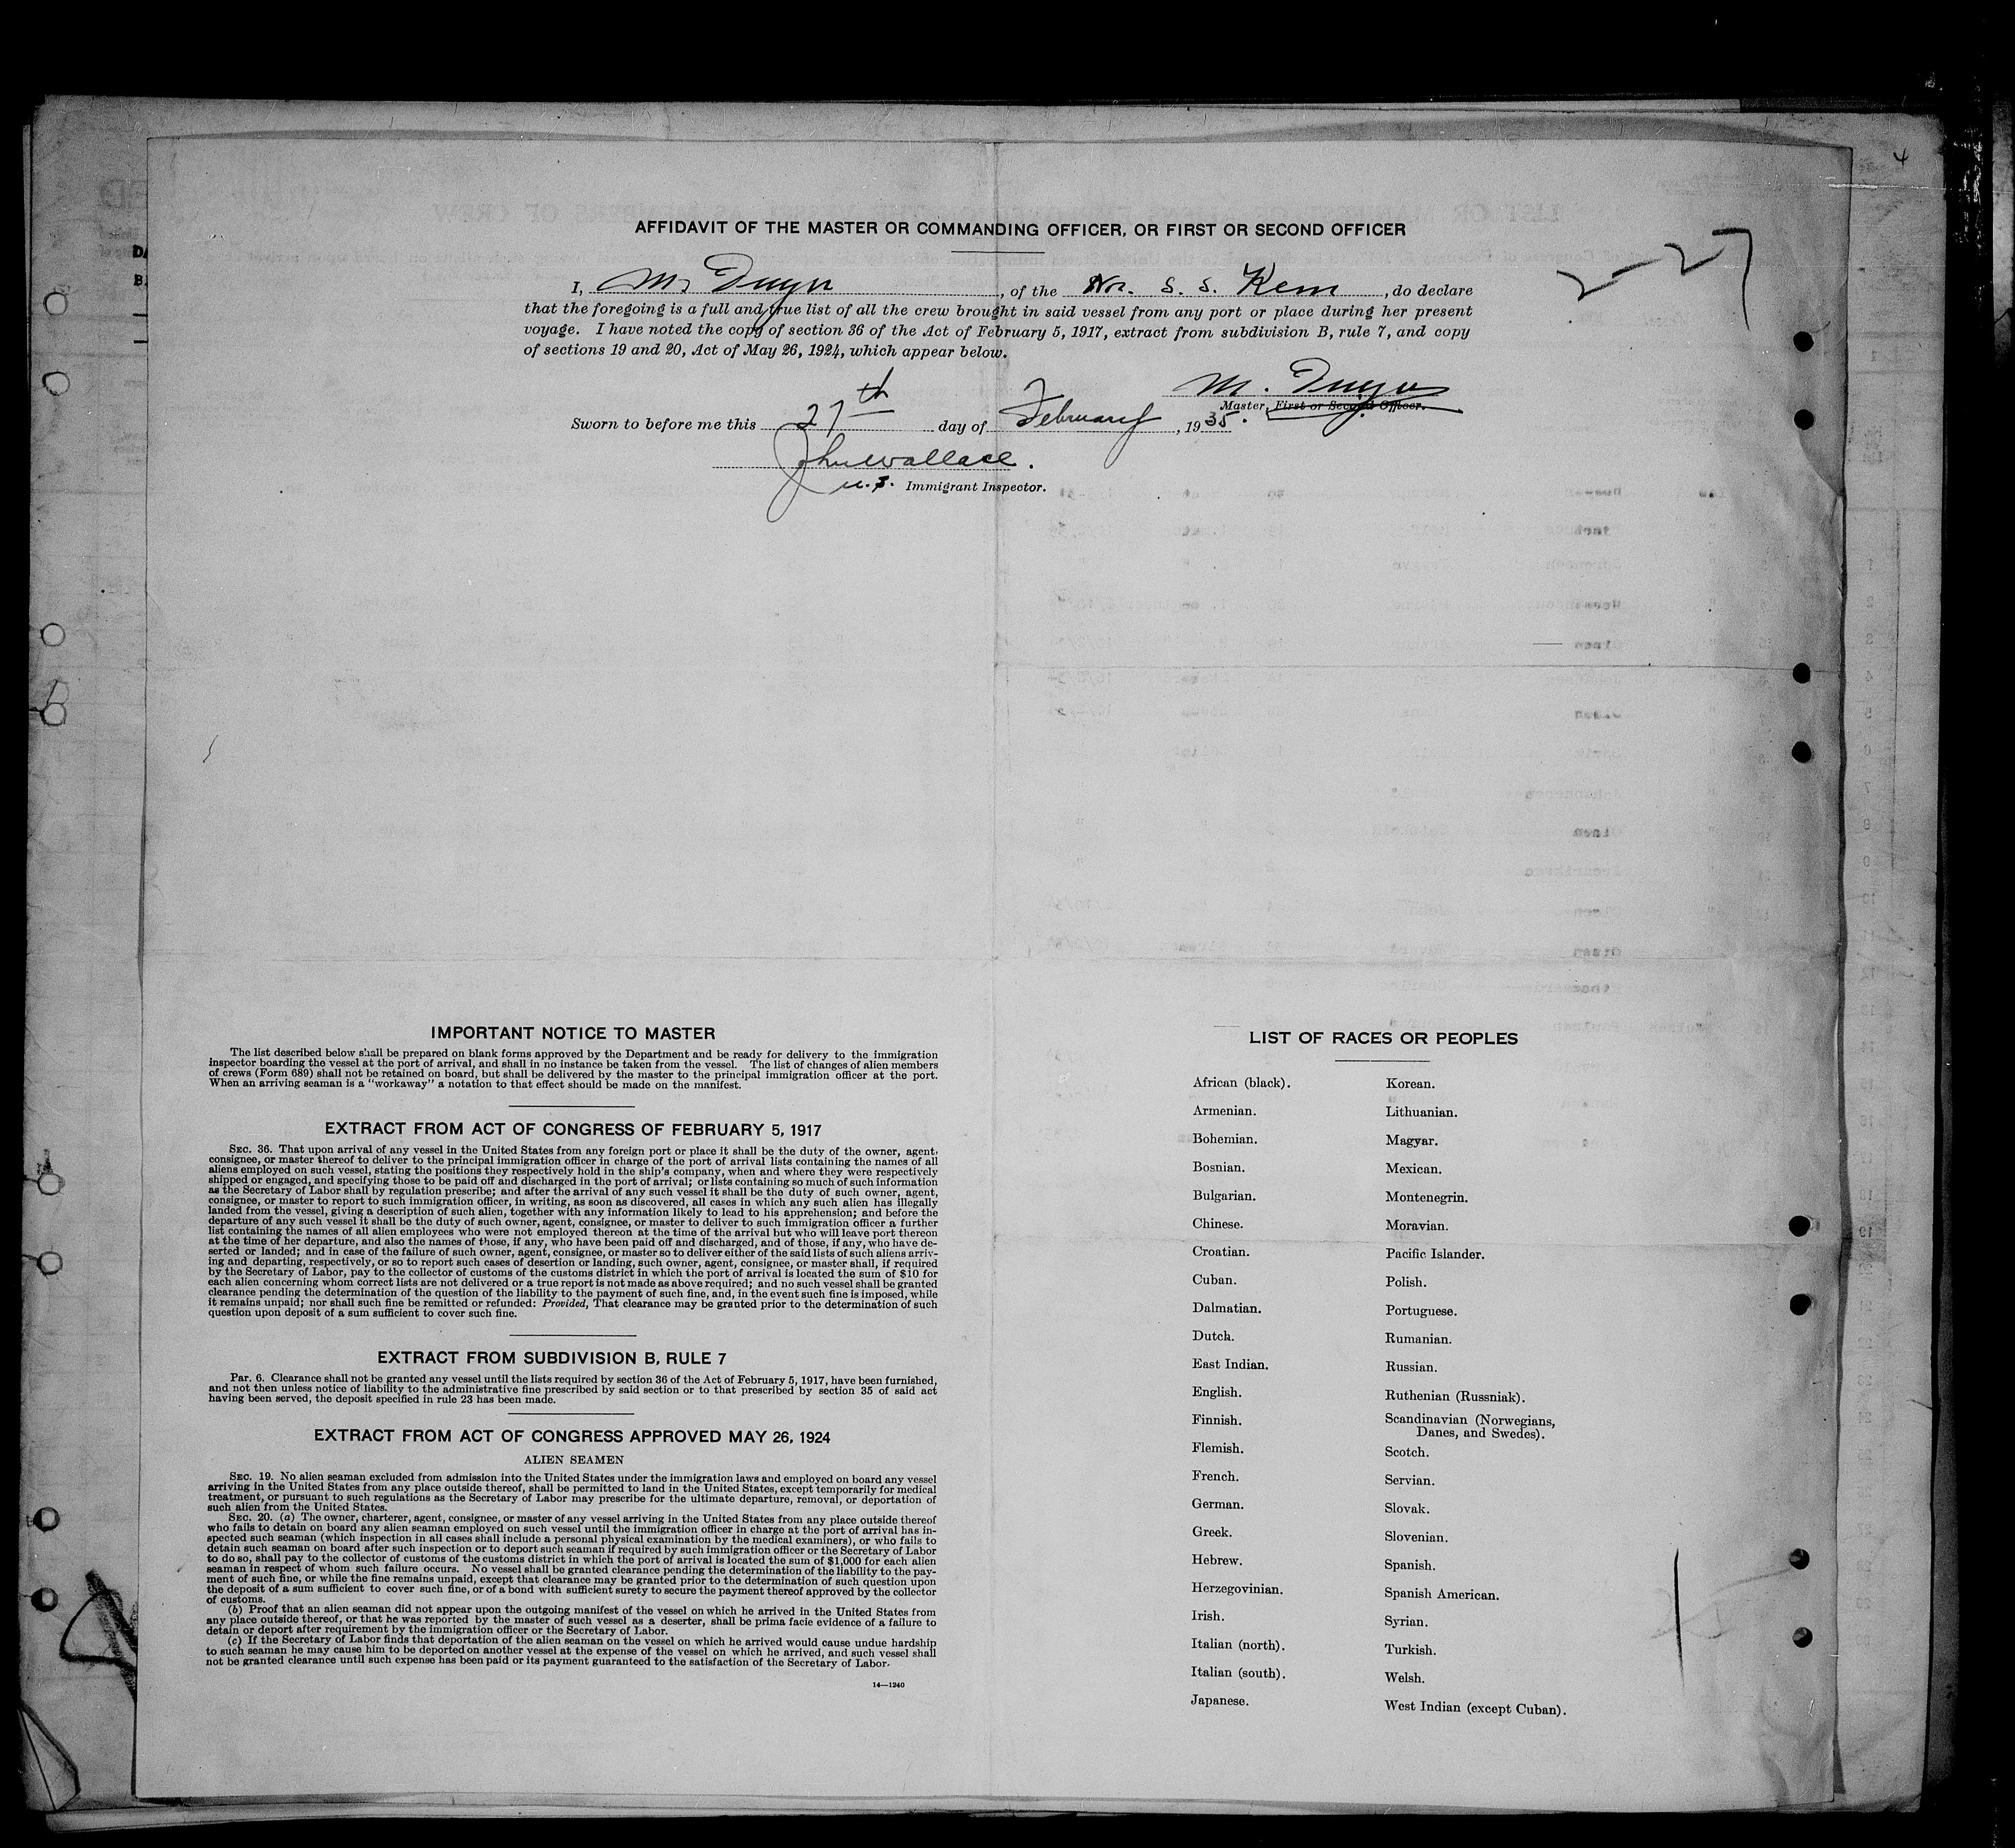 4
2-27
AFFIDAVIT OF THE MASTER OR COMMANDING OFFICER, OR FIRST OR SECOND OFFICER
I, M. , of the Nr. S. S. Kem , do declare
that the foregoing is a full and true list of all the crew brought in said vessel from any port or place during her present
voyage. I have noted the copy of section 36 of the Act of February 5, 1917, extract from subdivision B, rule 7, and copy
of sections 19 and 20, Act of May 26, 1924, which appear below.
M.
Master, First or Second Officer.
Sworn to before me this 27th day of February, 1935.
Jhn Wallace.
U.S. Immigrant Inspector.
IMPORTANT NOTICE TO MASTER
The list described below shall be prepared on blank forms approved by the Department and be ready for delivery to the immigration
inspector boarding the vessel at the port of arrival, and shall in no instance be taken from the vessel. The list of changes of alien members
of crews (Form 689) shall not be retained on board, but shall be delivered by the master to the principal immigration officer at the port.
When an arriving seaman is a "workaway" a notation to that effect should be made on the manifest.
EXTRACT FROM ACT OF CONGRESS OF FEBRUARY 5, 1917
SEC. 36. That upon arrival of any vessel in the United States from any foreign port or place it shall be the duty of the owner, agent,
consignee, or master thereof to deliver to the principal immigration officer in charge of the port of arrival lists containing the names of all
aliens employed on such vessel, stating the positions they respectively hold in the ship's company, when and where they were respectively
shipped or engaged, and specifying those to be paid off and discharged in the port of arrival; or lists containing so much of such information
as the Secretary of Labor shall by regulation prescribe; and after the arrival of any such vessel it shall be the duty of such owner, agent,
consignee, or master to report to such immigration officer, in writing, as soon as discovered, all cases in which any such alien has illegally
landed from the vessel, giving a description of such alien, together with any information likely to lead to his apprehension; and before the
departure of any such vessel it shall be the duty of such owner, agent, consignee, or master to deliver to such immigration officer a further
list containing the names of all alien employees who were not employed thereon at the time of the arrival but who will leave port thereon
at the time of her departure, and also the names of those, if any, who have been paid off and discharged, and of those, if any, who have de-
serted or landed; and in case of the failure of such owner, agent, consignee, or master so to deliver either of the said lists of such aliens arriv-
ing and departing, respectively, or so to report such cases of desertion or landing, such owner, agent, consignee, or master shall, if required
by the Secretary of Labor, pay to the collector of customs of the customs district in which the port of arrival is located the sum of $10 for
each alien concerning whom correct lists are not delivered or a true report is not made as above required; and no such vessel shall be granted
clearance pending the determination of the question of the liability to the payment of such fine, and, in the event such fine is imposed, while
it remains unpaid; nor shall such fine be remitted or refunded: Provided, That clearance may be granted prior to the determination of such
question upon deposit of a sum sufficient to cover such fine.
EXTRACT FROM SUBDIVISION B, RULE 7
Par. 6. Clearance shall not be granted any vessel until the lists required by section 36 of the Act of February 5, 1917, have been furnished,
and not then unless notice of liability to the administrative fine prescribed by said section or to that prescribed by section 35 of said act
having been served, the deposit specified in rule 23 has been made.
EXTRACT FROM ACT OF CONGRESS APPROVED MAY 26, 1924
ALIEN SEAMEN
SEC. 19. No alien seaman excluded from admission into the United States under the immigration laws and employed on board any vessel
arriving in the United States from any place outside thereof, shall be permitted to land in the United States, except temporarily for medical
treatment, or pursuant to such regulations as the Secretary of Labor may prescribe for the ultimate departure, removal, or deportation of
such alien from the United States.
SEC. 20. (a) The owner, charterer, agent, consignee, or master of any vessel arriving in the United States from any place outside thereof
who fails to detain on board any alien seaman employed on such vessel until the immigration officer in charge at the port of arrival has in-
spected such seaman (which inspection in all cases shall include a personal physical examination by the medical examiners), or who fails to
detain such seaman on board after such inspection or to deport such seaman if required by such immigration officer or the Secretary of Labor
to do so, shall pay to the collector of customs of the customs district in which the port of arrival is located the sum of $1,000 for each alien
seaman in respect of whom such failure occurs. No vessel shall be granted clearance pending the determination of the liability to the pay-
ment of such fine, or while the fine remains unpaid, except that clearance may be granted prior to the determination of such question upon
the deposit of a sum sufficient to cover such fine, or of a bond with sufficient surety to secure the payment thereof approved by the collector
of customs.
(b) Proof that an alien seaman did not appear upon the outgoing manifest of the vessel on which he arrived in the United States from
any place outside thereof, or that he was reported by the master of such vessel as a deserter, shall be prima facie evidence of a failure to
detain or deport after requirement by the immigration officer or the Secretary of Labor.
(c) If the Secretary of Labor finds that deportation of the alien seaman on the vessel on which he arrived would cause undue hardship
to such seaman he may cause him to be deported on another vessel at the expense of the vessel on which he arrived, and such vessel shall
not be granted clearance until such expense has been paid or its payment guaranteed to the satisfaction of the Secretary of Labor.
14—1240
LIST OF RACES OR PEOPLES
African (black).
Armenian.
Bohemian.
Bosnian.
Bulgarian.
Chinese.
Croatian.
Cuban.
Dalmatian.
Dutch.
East Indian.
English.
Finnish.
Flemish.
French.
German.
Greek.
Hebrew.
Herzegovinian.
Irish.
Italian (north).
Italian (south).
Japanese.
Korean.
Lithuanian.
Magyar.
Mexican.
Montenegrin.
Moravian.
Pacific Islander.
Polish.
Portuguese.
Rumanian.
Russian.
Ruthenian (Russniak).
Scandinavian (Norwegians,
Danes, and Swedes).
Scotch.
Servian.
Slovak.
Slovenian.
Spanish.
Spanish American.
Syrian.
Turkish.
Welsh.
West Indian (except Cuban).